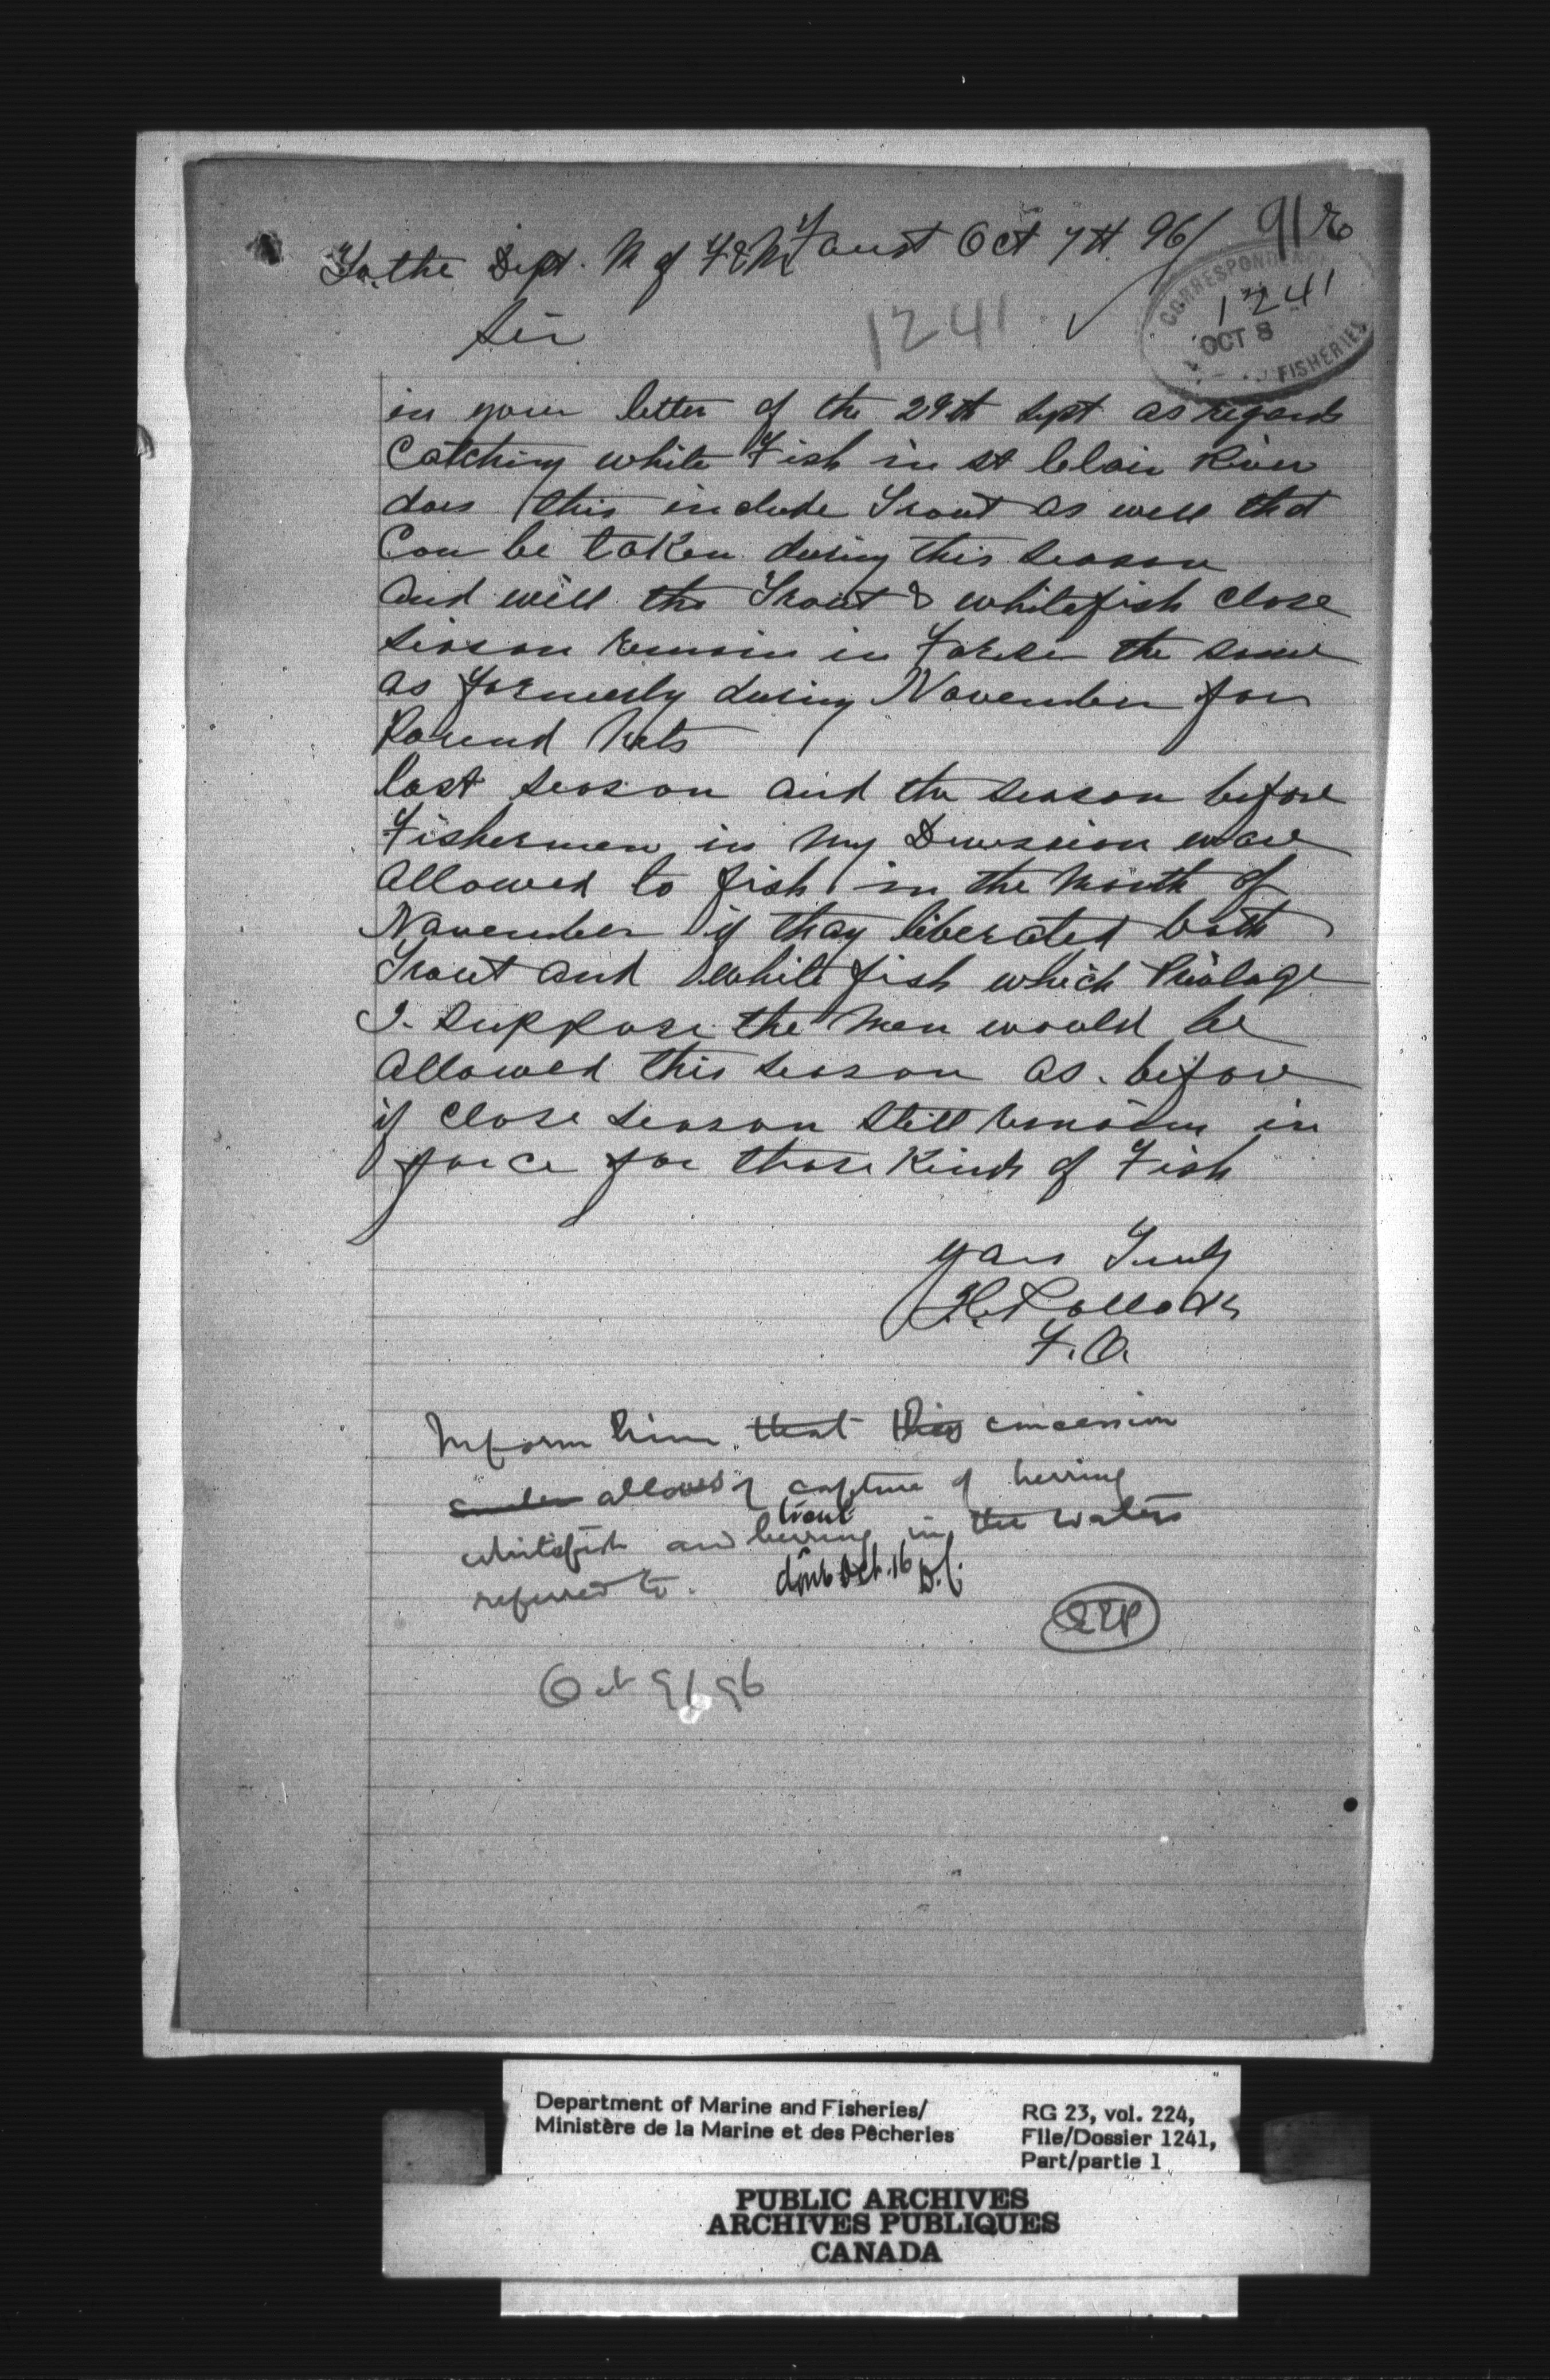 91
To the Dept. M of F & M Faust Oct 7th 96/
CORRESPONDENCE
1241
OCT 8
FISHERIES
1241
Sir
in your letter of the 29th Sept as regards
Catching white Fish in st Clair River
does this include Trout as well that
Can be taken during this season
and will the Trout & whitefish close
season remain in Force the same
as formerly during November for
Pound Nets
last season and the season before
Fishermen in my Division ware
allowed to fish in the month of
November if thay liberated both
Trout and white fish which Privlage
I suppose the men would be
allowed this season as before
if close season still remains in
force for those Kinds of Fish
yars Truly
H. Pollock
F.O.
Inform him that this concession
under allows of capture of herring
whitefish and herring trout in the waters
referred to. done Oct. 16
EEP
Oct 9/96
Department of Marine and Fisheries/
Ministère de la Marine et des Pêcheries
RG 23, vol. 224,
File/Dossier 1241,
Part/partie 1
PUBLIC ARCHIVES
ARCHIVES PUBLIQUES
CANADA